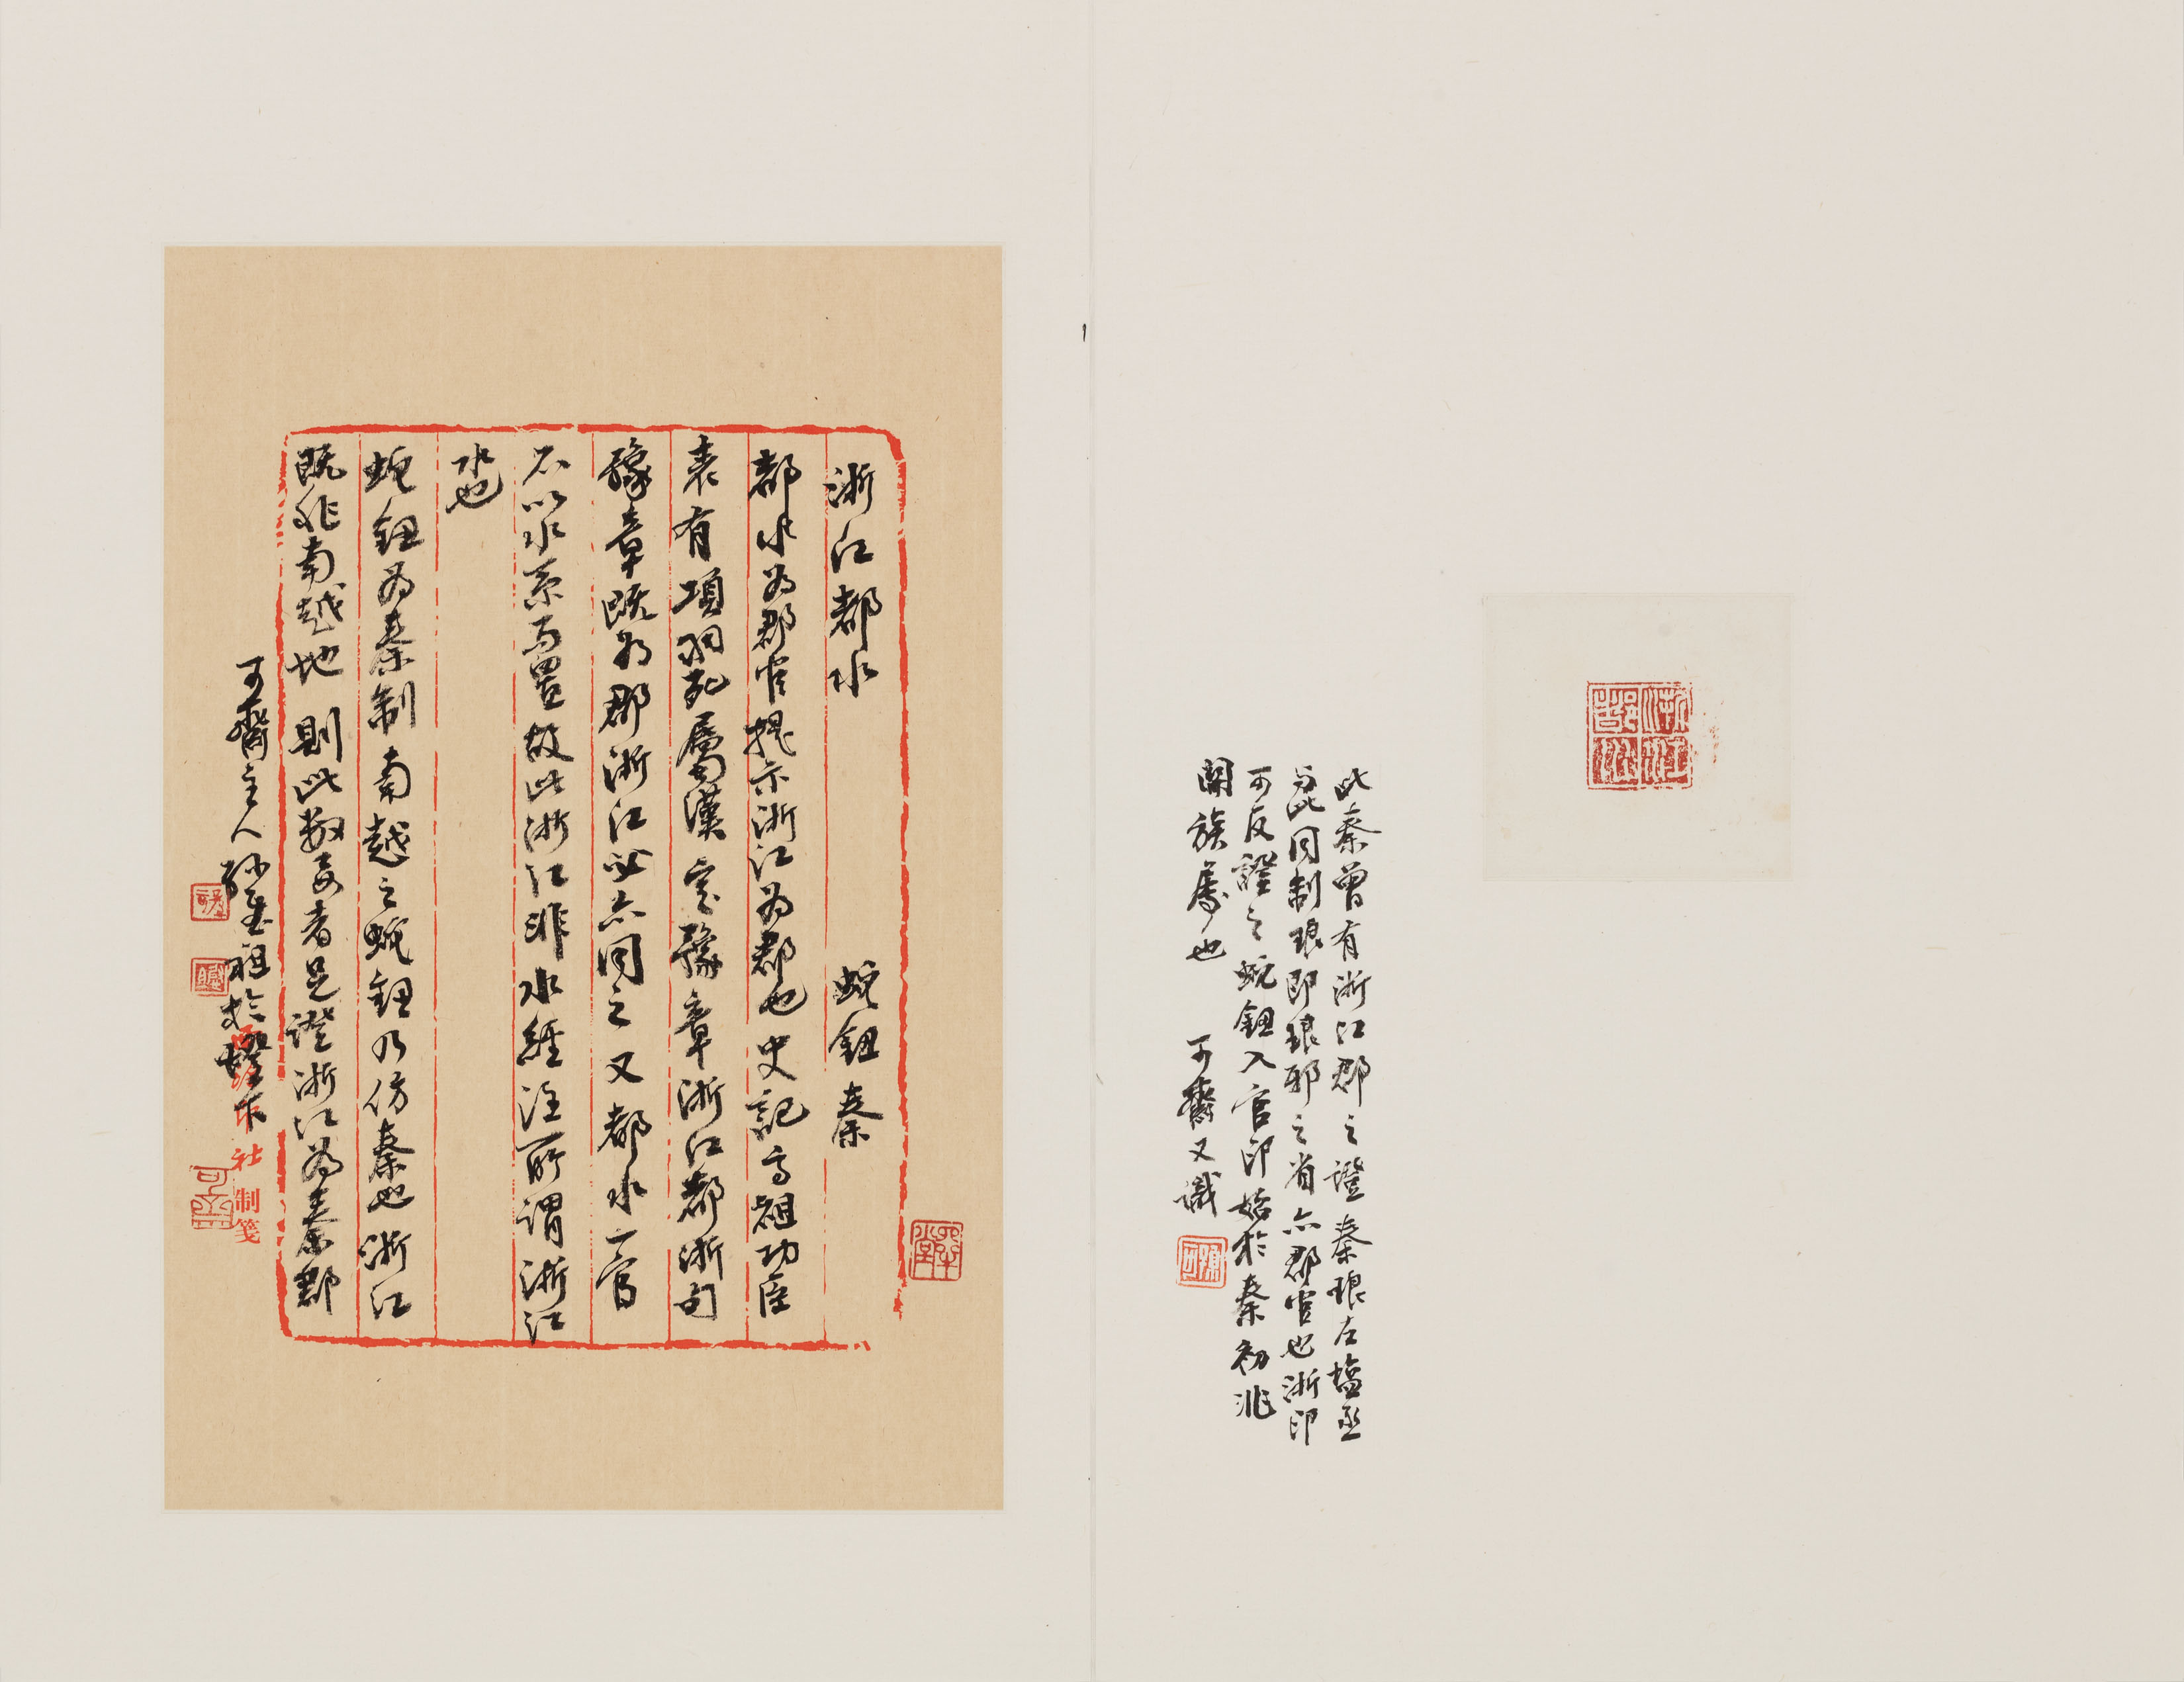 浙江都水
此秦曾有浙江郡之證秦琅左塩丞
與此同制琅即琅邪之省亦郡官也浙印
可反證之蛇鈕入官印始於秦初非
關族屬也　可齋又識
浙江都水　蛇鈕秦
都水為郡官提示浙江為郡也史記高祖功臣
表有項羽死屬漢定豫章浙江都浙句
豫章既為郡浙江必亦同之又都水一官
不以水系而置故此浙江非水經注所謂浙江
水也
蛇鈕為秦制南越之蛇鈕乃仿秦也浙江
既非南越地則此數者足證浙江為秦郡
可齋主人孫慰祖於燈下
社制箋